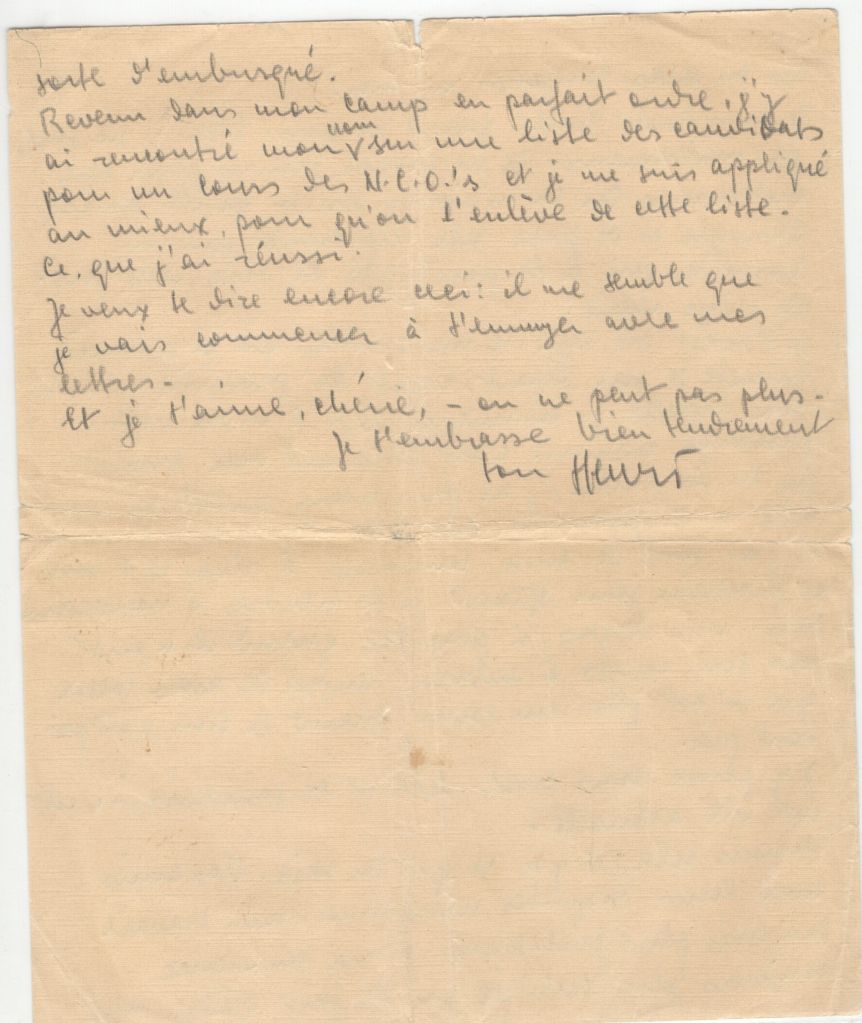 sorte d'embusqué.
Revenu dans mon camp en parfait ordre, j'y
ai rencontré mon nom sur une liste des candidats
pour un cours des N.C.O.'s et je me suis appliqué
au mieux, pour qu'on l'enlève de cette liste.
Ce, que j'ai réussi.
Je veux te dire encore ceci: il me semble que
je vais commencer à t'ennuyer avec mes
lettres.
Et je t'aime, chérie, – on ne peut pas plus.
Je t'embrasse bien tendrement
ton Henri